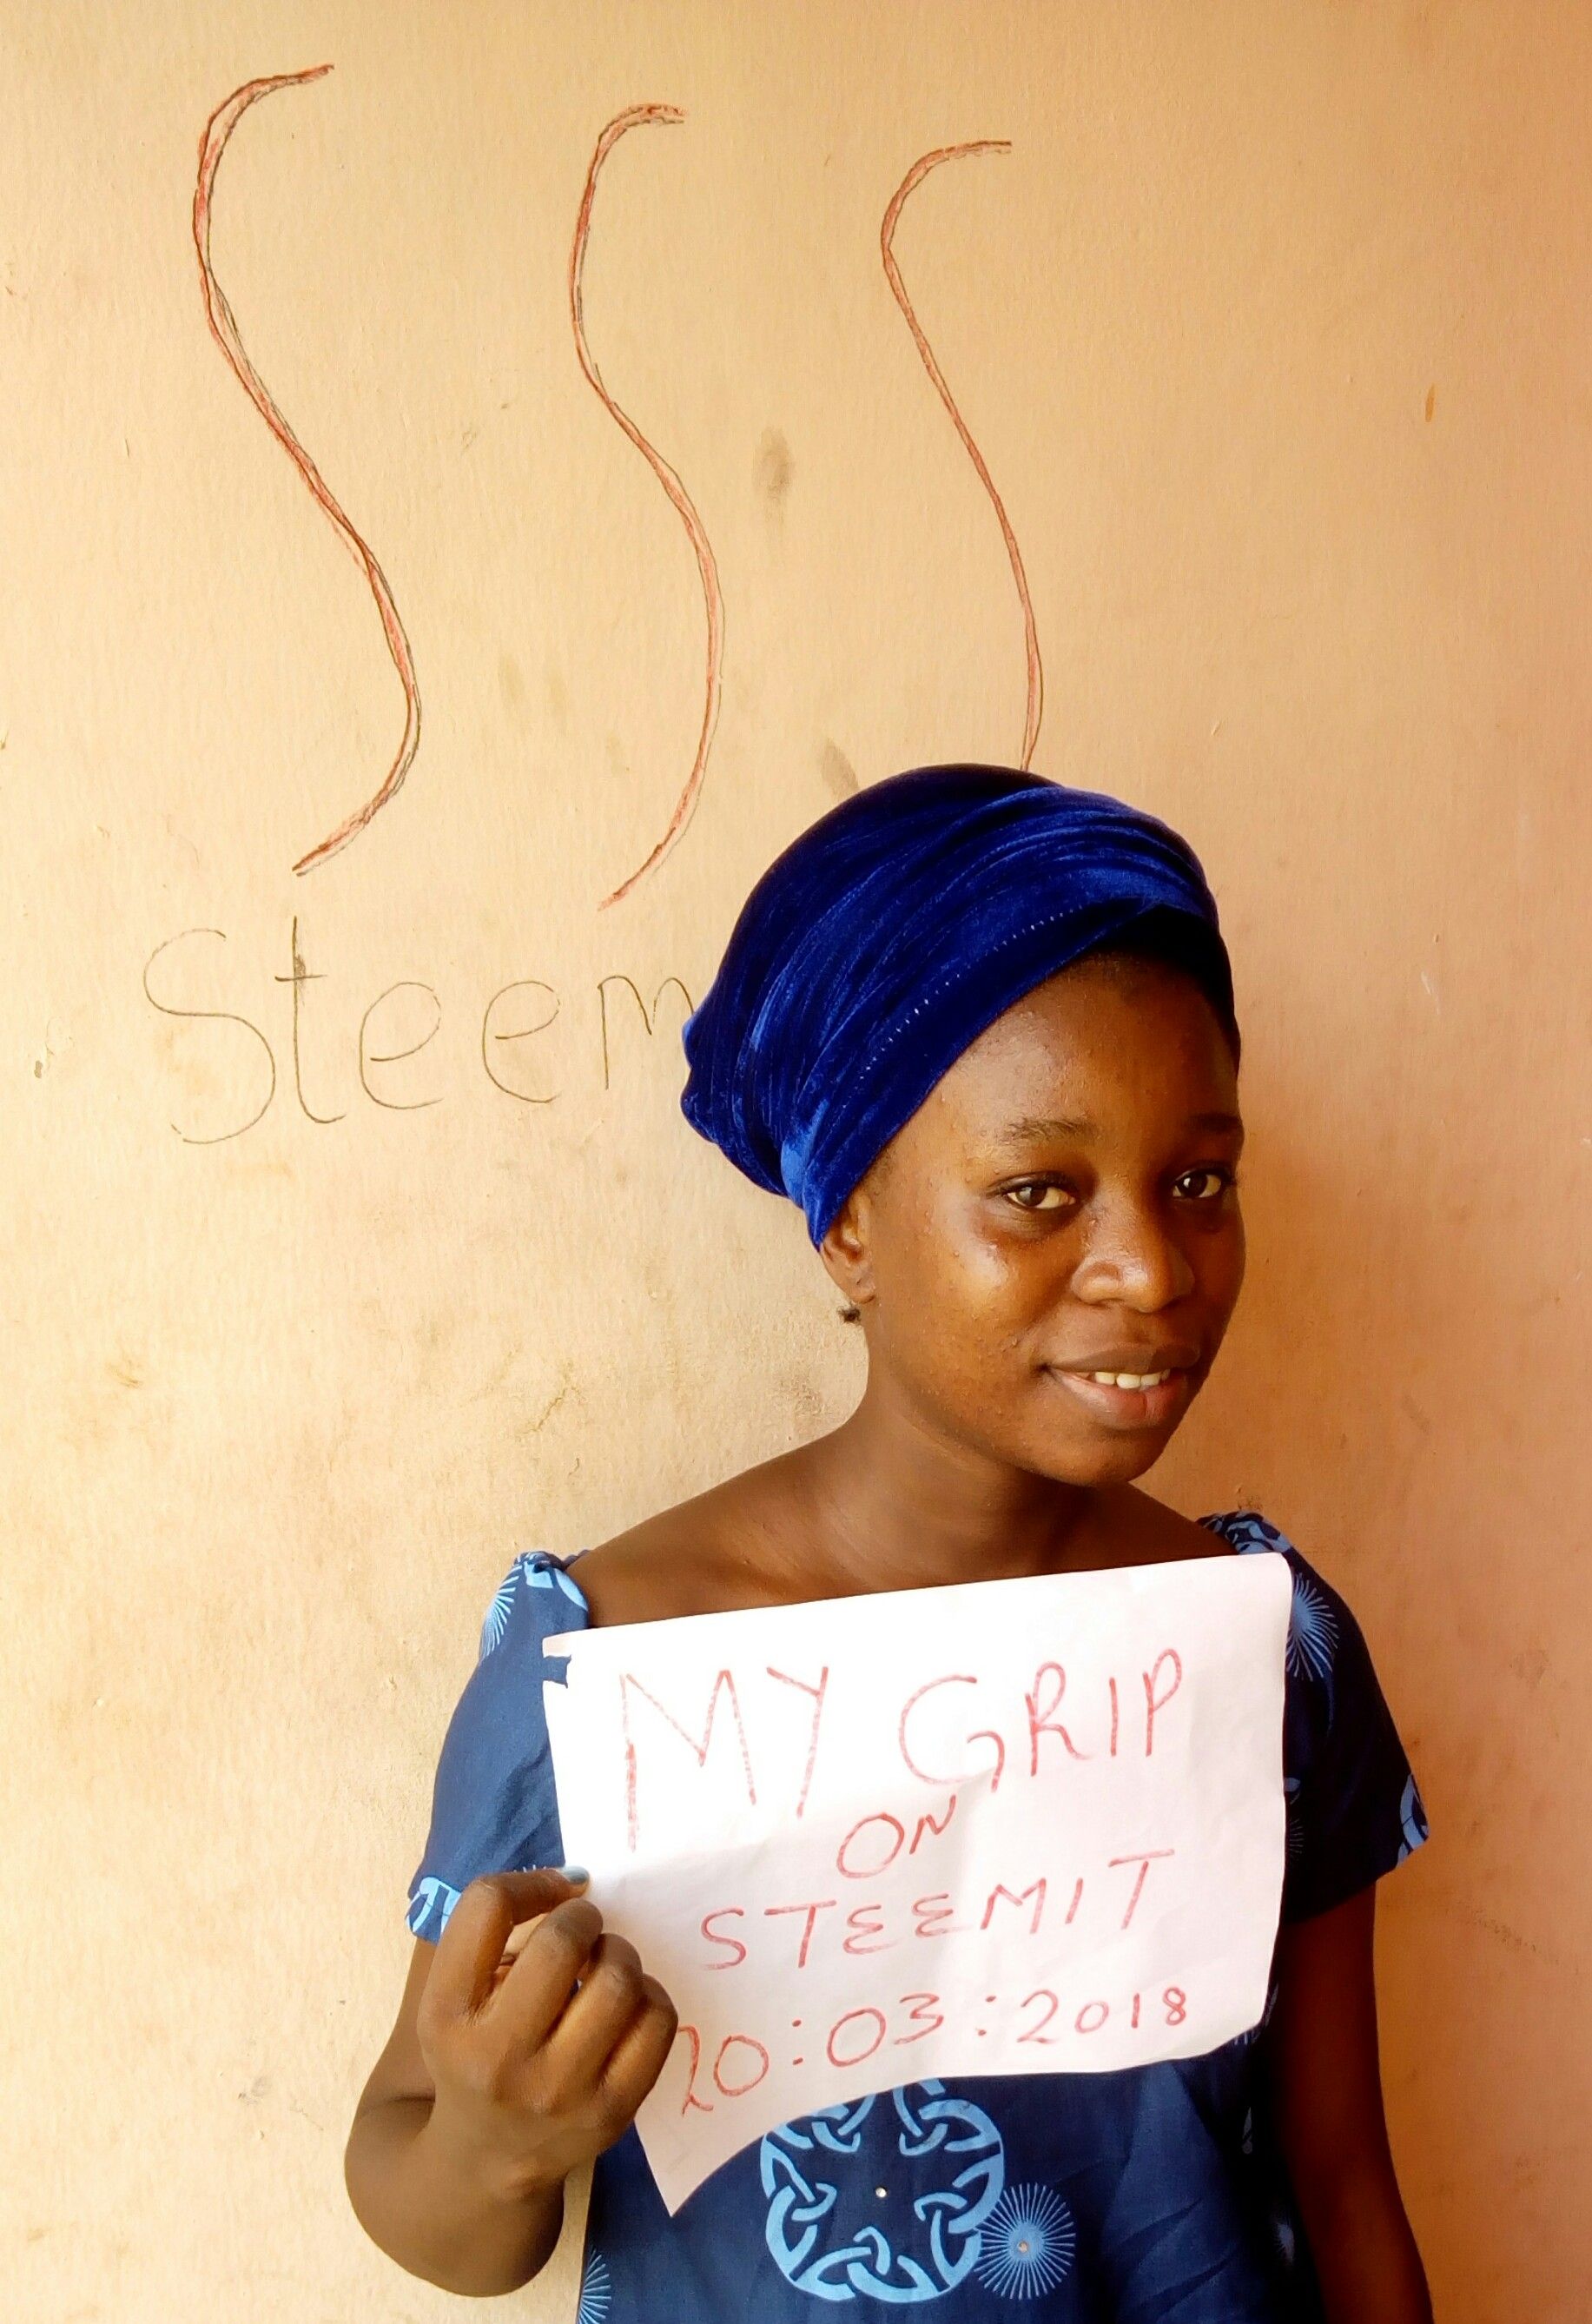 SSS
Steem
MY GRIP
ON
STEEMIT
20:03:2018